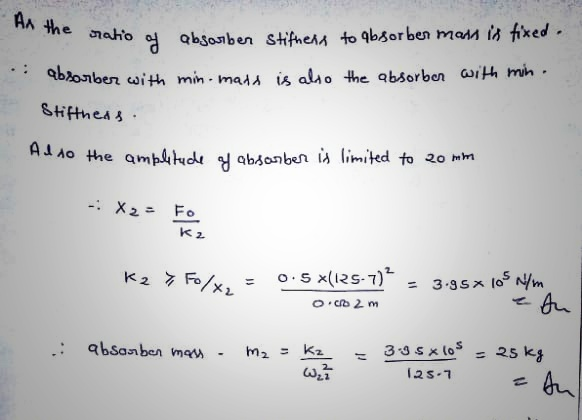 As the ratio of absorber stiffness to absorber mass is fixed.
∴ absorber with min. mass is also the absorber with min.
Stiffness.
Also the amplitude of absorber is limited to 20 mm
∴ X2 = Fo/K2
K2 ≥ Fo/X2 = 0.5 x(125.7)² / 0.002 m = 3.95 x 10⁵ N/m
= An
∴ absorber mass - m2 = K2/ω22² = 3.95 x 10⁵/125.7 = 25 kg
= An